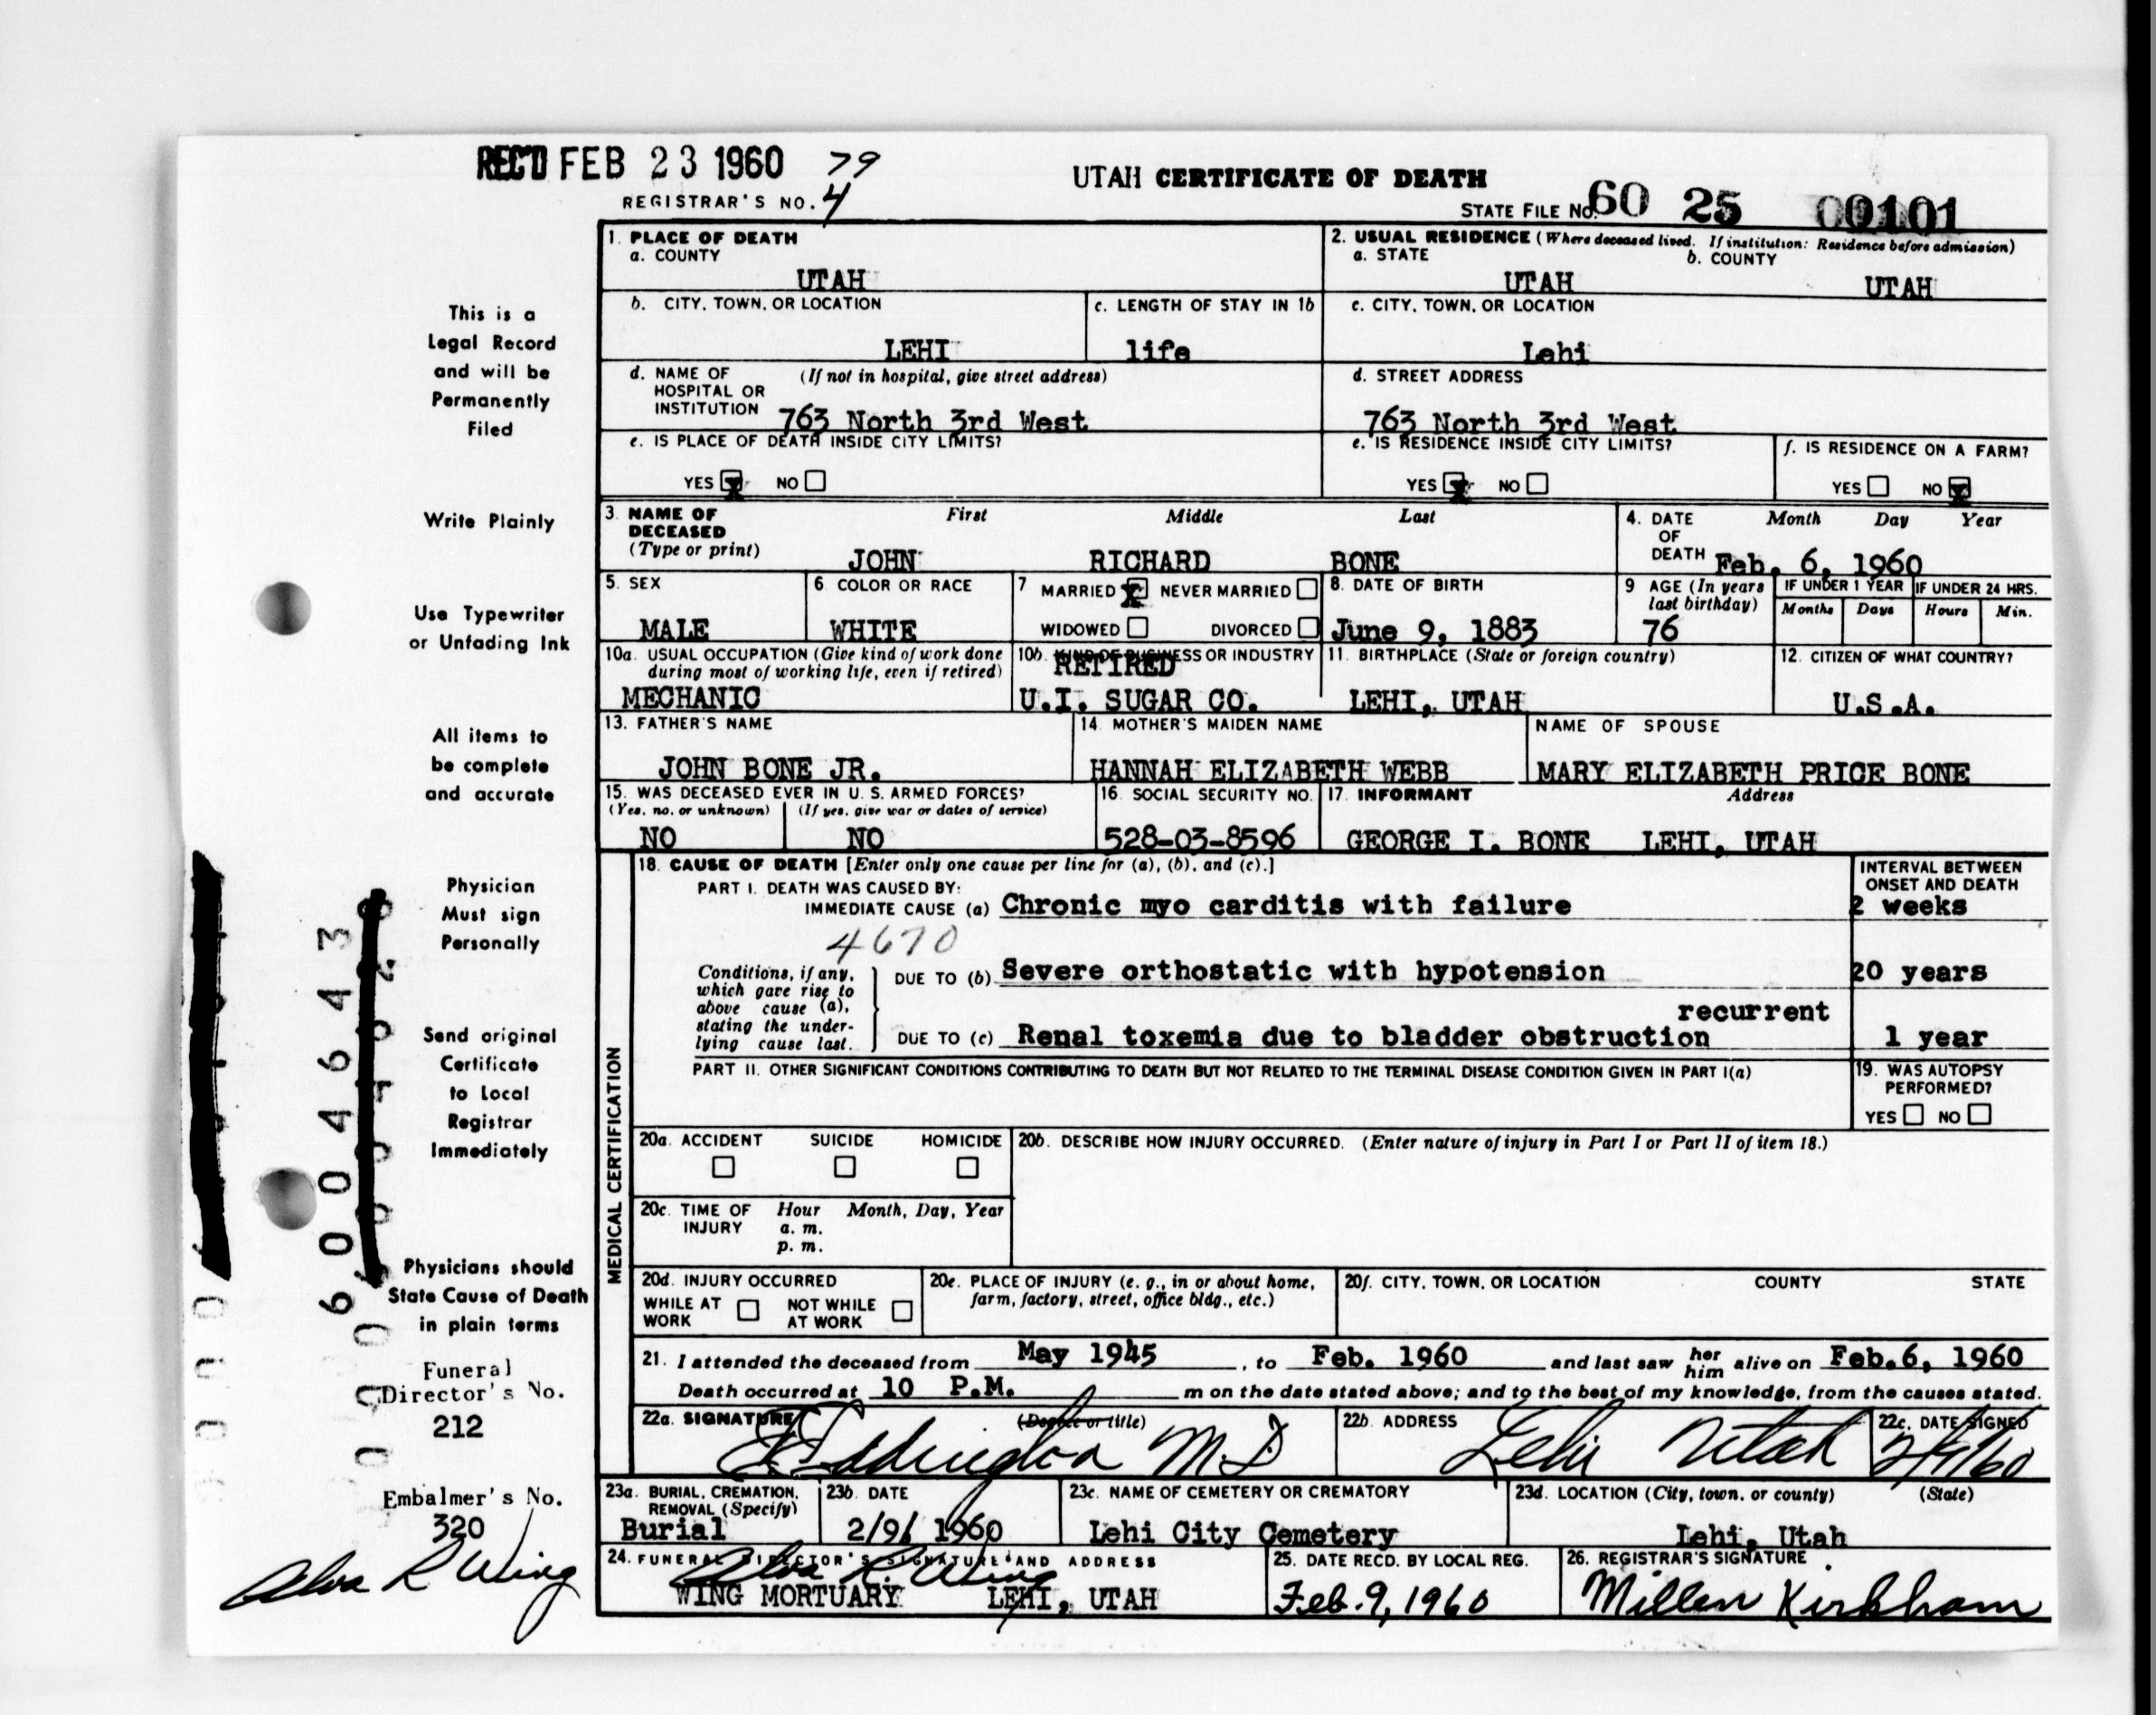 REC'D FEB 23 1960 79
REGISTRAR'S NO. 4
UTAH CERTIFICATE OF DEATH
STATE FILE NO. 60 25 00101
This is a
Legal Record
and will be
Permanently
Filed
Write Plainly
Use Typewriter
or Unfading Ink
All items to
be complete
and accurate
Physician
Must sign
Personally
Send original
Certificate
to Local
Registrar
Immediately
Physicians should
State Cause of Death
in plain terms
Funeral
Director's No.
212
Embalmer's No.
320
Alva R Wing
600 4643
1. PLACE OF DEATH
a. COUNTY
UTAH
2. USUAL RESIDENCE (Where deceased lived. If institution: Residence before admission)
a. STATE b. COUNTY
UTAH UTAH
b. CITY, TOWN, OR LOCATION
LEHI
c. LENGTH OF STAY IN 1b
life
c. CITY, TOWN, OR LOCATION
Lehi
d. NAME OF (If not in hospital, give street address)
HOSPITAL OR
INSTITUTION 763 North 3rd West
d. STREET ADDRESS
763 North 3rd West
e. IS PLACE OF DEATH INSIDE CITY LIMITS?
YES X NO
e. IS RESIDENCE INSIDE CITY LIMITS?
YES X NO
f. IS RESIDENCE ON A FARM?
YES NO X
3. NAME OF First Middle Last
DECEASED
(Type or print) JOHN RICHARD BONE
4. DATE Month Day Year
OF
DEATH Feb. 6, 1960
5. SEX
MALE
6. COLOR OR RACE
WHITE
7 MARRIED X NEVER MARRIED
WIDOWED DIVORCED
8. DATE OF BIRTH
June 9, 1883
9 AGE (In years
last birthday)
76
IF UNDER 1 YEAR IF UNDER 24 HRS.
Months Days Hours Min.
10a. USUAL OCCUPATION (Give kind of work done
during most of working life, even if retired)
MECHANIC
10b. KIND OF BUSINESS OR INDUSTRY
RETIRED
U.I. SUGAR CO.
11. BIRTHPLACE (State or foreign country)
LEHI, UTAH
12. CITIZEN OF WHAT COUNTRY?
U.S.A.
13. FATHER'S NAME
JOHN BONE JR.
14. MOTHER'S MAIDEN NAME
HANNAH ELIZABETH WEBB
NAME OF SPOUSE
MARY ELIZABETH PRICE BONE
15. WAS DECEASED EVER IN U. S. ARMED FORCES?
(Yes, no, or unknown) (If yes, give war or dates of service)
NO NO
16. SOCIAL SECURITY NO.
528-03-8596
17. INFORMANT Address
GEORGE I. BONE LEHI, UTAH
MEDICAL CERTIFICATION
18. CAUSE OF DEATH [Enter only one cause per line for (a), (b), and (c).]
INTERVAL BETWEEN
ONSET AND DEATH
PART I. DEATH WAS CAUSED BY:
IMMEDIATE CAUSE (a) Chronic myo carditis with failure 2 weeks
4670
Conditions, if any,
which gave rise to
above cause (a),
stating the under-
lying cause last.
DUE TO (b) Severe orthostatic with hypotension 20 years
recurrent
DUE TO (c) Renal toxemia due to bladder obstruction 1 year
PART II. OTHER SIGNIFICANT CONDITIONS CONTRIBUTING TO DEATH BUT NOT RELATED TO THE TERMINAL DISEASE CONDITION GIVEN IN PART I(a)
19. WAS AUTOPSY
PERFORMED?
YES NO
20a. ACCIDENT SUICIDE HOMICIDE
20b. DESCRIBE HOW INJURY OCCURRED. (Enter nature of injury in Part I or Part II of item 18.)
20c. TIME OF Hour Month, Day, Year
INJURY a. m.
p. m.
20d. INJURY OCCURRED
WHILE AT NOT WHILE
WORK AT WORK
20e. PLACE OF INJURY (e. g., in or about home,
farm, factory, street, office bldg., etc.)
20f. CITY, TOWN, OR LOCATION COUNTY STATE
21. I attended the deceased from May 1945, to Feb. 1960 and last saw her him alive on Feb.6, 1960
Death occurred at 10 P.M. m on the date stated above; and to the best of my knowledge, from the causes stated.
22a. SIGNATURE (Degree or title)
Eddington M.D
22b. ADDRESS
Lehi Utah
22c. DATE SIGNED
23a. BURIAL, CREMATION,
REMOVAL (Specify)
Burial
23b. DATE
2/9/ 1960
23c. NAME OF CEMETERY OR CREMATORY
Lehi City Cemetery
23d. LOCATION (City, town, or county) (State)
Lehi, Utah
24. FUNERAL DIRECTOR'S SIGNATURE AND ADDRESS
Alva R. Wing
WING MORTUARY LEHI, UTAH
25. DATE RECD. BY LOCAL REG.
Feb. 9, 1960
26. REGISTRAR'S SIGNATURE
Millen Kirkham